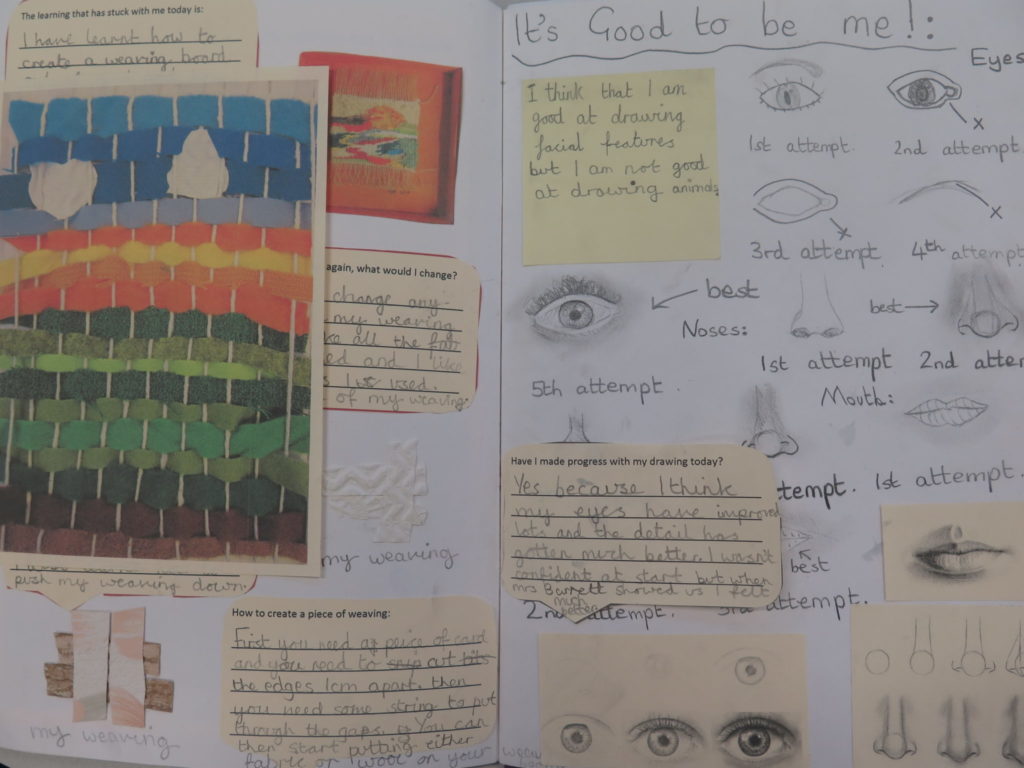 The learning that has stuck with me today is:
I have learnt how to
create a weaving board
again, what would I change?
change any-
my weaving
all the
ed and I like
I used.
of my weaving.
my weaving
push my weaving down.
my weaving
How to create a piece of weaving:
First you need a peice of card
and you need to snip cut bits
the edges 1cm apart. then
you need some string to put
through the gaps. You can
then start putting either
fabric or wool on your
It's Good to be me!:
I think that I am
good at drawing
facial features
but I am not good
at drawing animals
Eyes
1st attempt.
2nd attempt
x
3rd attempt
x
4th attempt
x
best
5th attempt.
Noses:
best
1st attempt
2nd atte
Mouth:
tempt.
1st attempt.
Have I made progress with my drawing today?
Yes because I think
my eyes have improved
lots and the detail has
gotten much better. I wasn't
confident at start but when
mrs Barrett showed us I felt
much
better
best
2nd attempt.
3rd attempt.